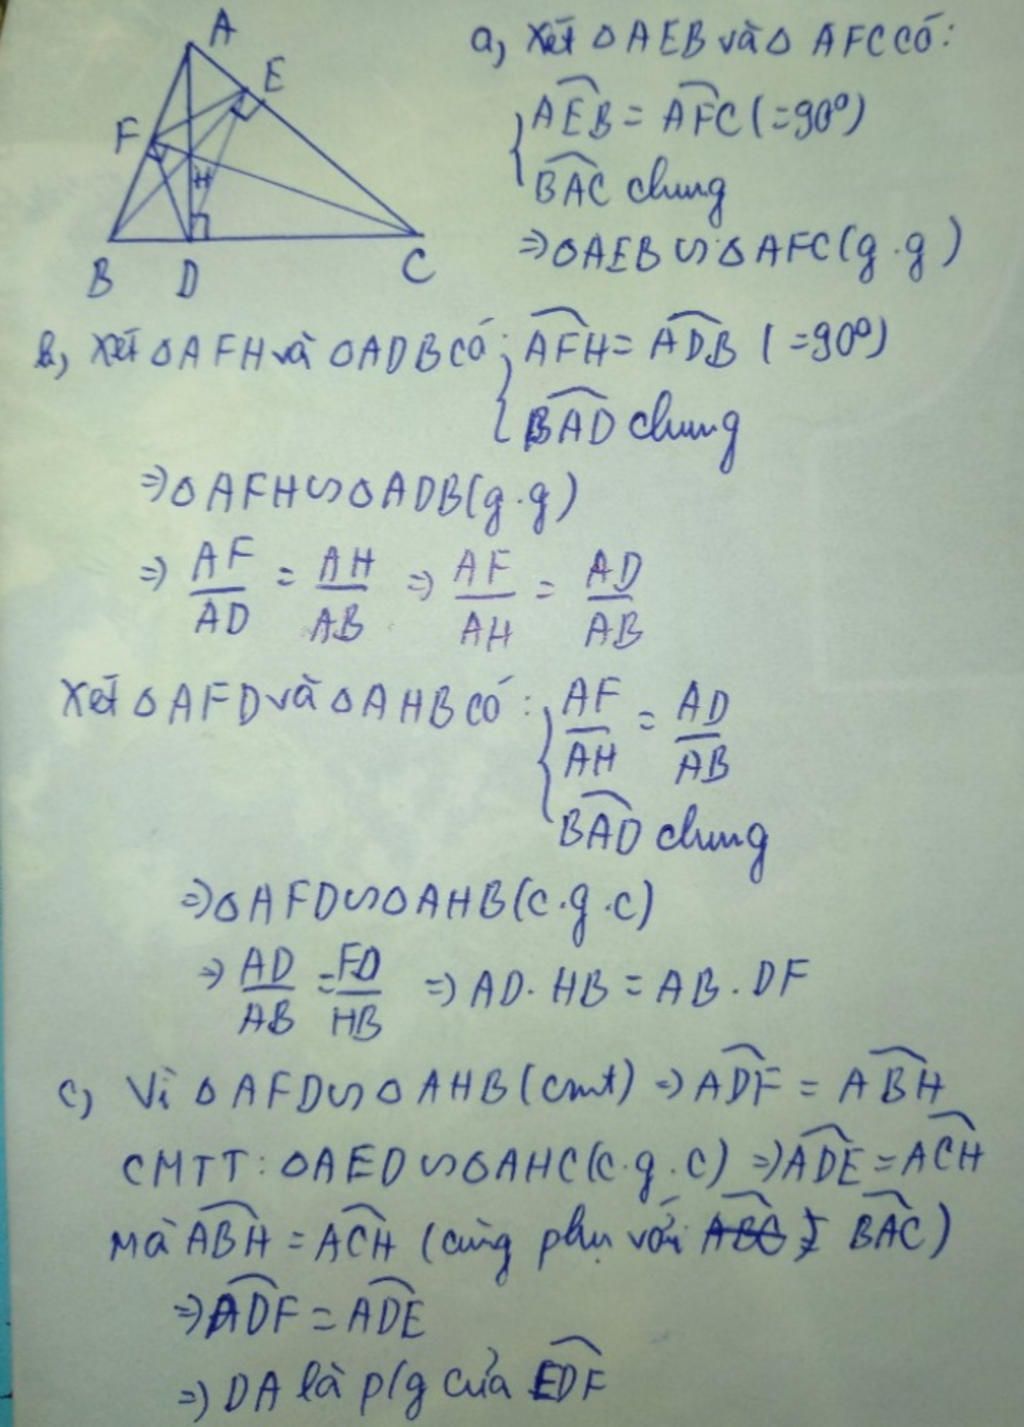 A
E
F
H
B D C
a, Xét △AEB và △AFC có:
{ \widehat{AEB} = \widehat{AFC} (=90°)
\widehat{BAC} chung
⇒ △AEB ∽ △AFC (g.g)
b, Xét △AFH và △ADB có: { \widehat{AFH} = \widehat{ADB} (=90°)
\widehat{BAD} chung
⇒ △AFH ∽ △ADB (g.g)
⇒ AF/AD = AH/AB ⇒ AF/AH = AD/AB
Xét △AFD và △AHB có: { AF/AH = AD/AB
\widehat{BAD} chung
⇒ △AFD ∽ △AHB (c.g.c)
⇒ AD/AB = FD/HB ⇒ AD.HB = AB.DF
c, Vì △AFD ∽ △AHB (cmt) ⇒ \widehat{ADF} = \widehat{ABH}
CMTT: △AED ∽ △AHC (c.g.c) ⇒ \widehat{ADE} = \widehat{ACH}
Mà \widehat{ABH} = \widehat{ACH} (cùng phụ với \widehat{BAC})
⇒ \widehat{ADF} = \widehat{ADE}
⇒ DA là p/g của \widehat{EDF}